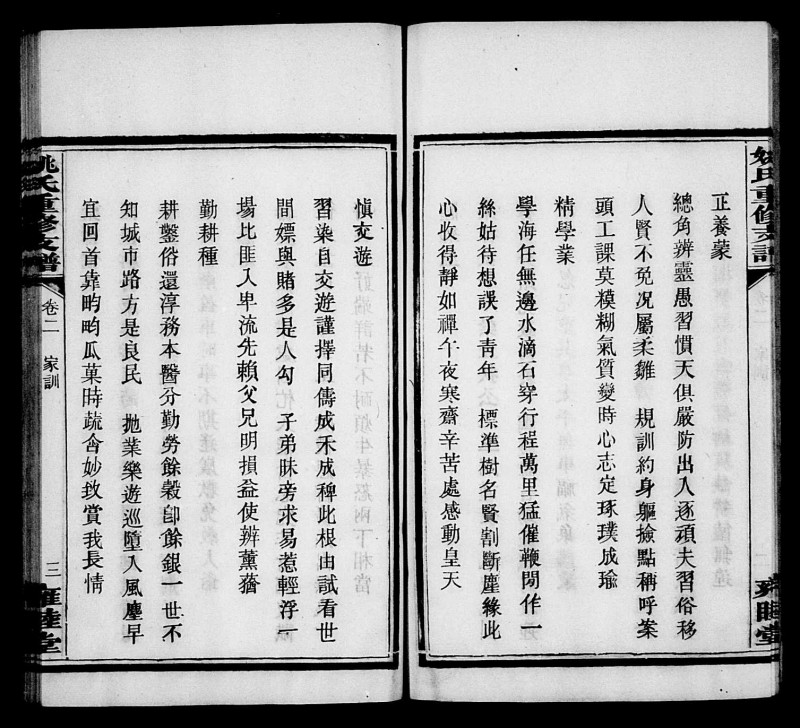 姚氏重修支譜
正養蒙
總角辨靈愚習慣天俱嚴防出入逐頑夫習俗移
人賢不免况屬柔雛 規訓約身軀撿點稱呼案
頭工課莫糢糊氣質變時心志定琢璞成瑜
精學業
學海任無邊水滴石穿行程萬里猛催鞭閒作一
絲姑待想誤了青年 標準樹名賢割斷塵緣此
心收得靜如禪午夜寒齋辛苦處感動皇天
雍睦堂
愼交遊
習染自交遊謹擇同儔成禾成稗此根由試看世
間嫖與賭多是人勾 子弟昧旁求易惹輕浮一
場比匪入卑流先賴父兄明損益使辨薰蕕
勤耕種
耕鑿俗還淳務本醫分勤勞餘穀卽餘銀一世不
知城市路方是良民 抛業樂遊巡墮入風塵早
宜回首靠畇畇瓜菓時蔬含妙致賞我長情
姚氏重修支譜
卷二 家訓
三
雍睦堂